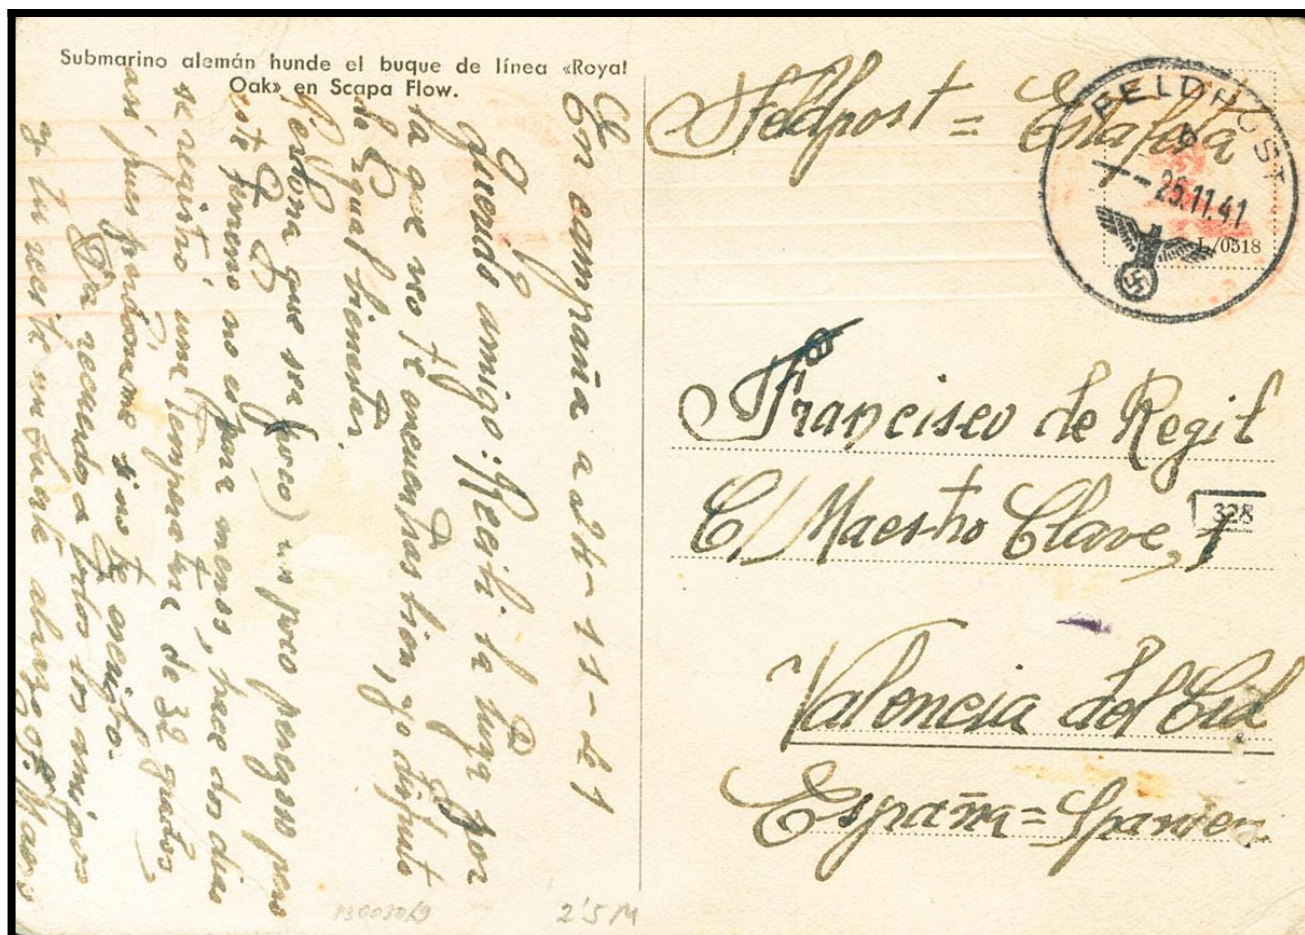 Submarino alemán hunde el buque de línea «Royal
Oak» en Scapa Flow.
En campaña a 24-11-41
Querido amigo: Regil. la tuya por
la que veo te encuentras bien, yo disfruto
de igual bienestar.
Perdona que sea (poco) un poco perezoso pero
este terreno no es por menos, hace dos días
se registró una temperatura de 32 grados
así pues perdóname si no te escribo.
Da recuerdos a todos los amigos
y tu recibe un fuerte abrazo
Feldpost = Estafeta
FELDPOST
b
25.11.41
L/0518
Francisco de Regil
C/ Maestro Clave, 1
328
Valencia del Cid
España = Spanien
2'5M